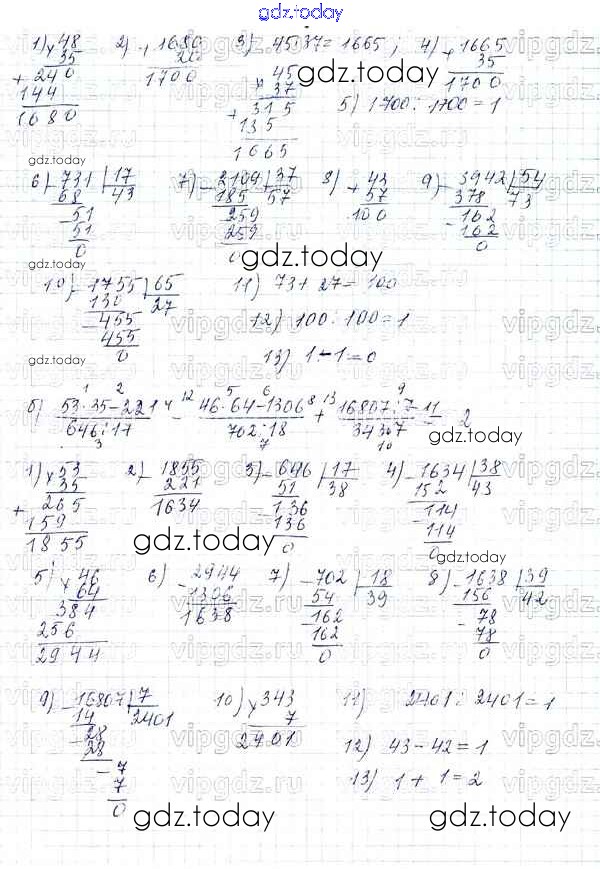 gdz.today
1) × 48 2) + 1680 3) 45·37=1665; 4) + 1665
35 20 45 35
+ 240 1700 × 37 1700
144 + 315 5) 1700:1700=1
1680 135
1665
6) - 731 | 17 7) - 2109 | 37 8) + 43 9) - 3942 | 54
68 43 185 57 57 378 73
- 51 259 100 - 162
51 259 162
0 0 0
10) - 1755 | 65 11) 73+27=100
130 27
- 455 12) 100:100=1
455
0 13) 1-1=0
1 2 4 12 5 6 8 13 9 11
б) 53·35-221 - 46·64-1306 + 16807:7 = 2
646:17 702:18 343·7
3 7 10
1) × 53 2) - 1855 3) - 646 | 17 4) - 1634 | 38
35 221 51 38 152 43
+ 265 1634 - 136 - 114
159 136 114
1855 0 0
5) × 46 6) - 2944 7) - 702 | 18 8) - 1638 | 39
64 1306 54 39 156 42
384 1638 - 162 - 78
256 162 78
2944 0 0
9) - 16807 | 7 10) × 343 11) 2401:2401=1
14 2401 7
- 28 2401 12) 43-42=1
28
- 7 13) 1+1=2
7
0
gdz.today gdz.today